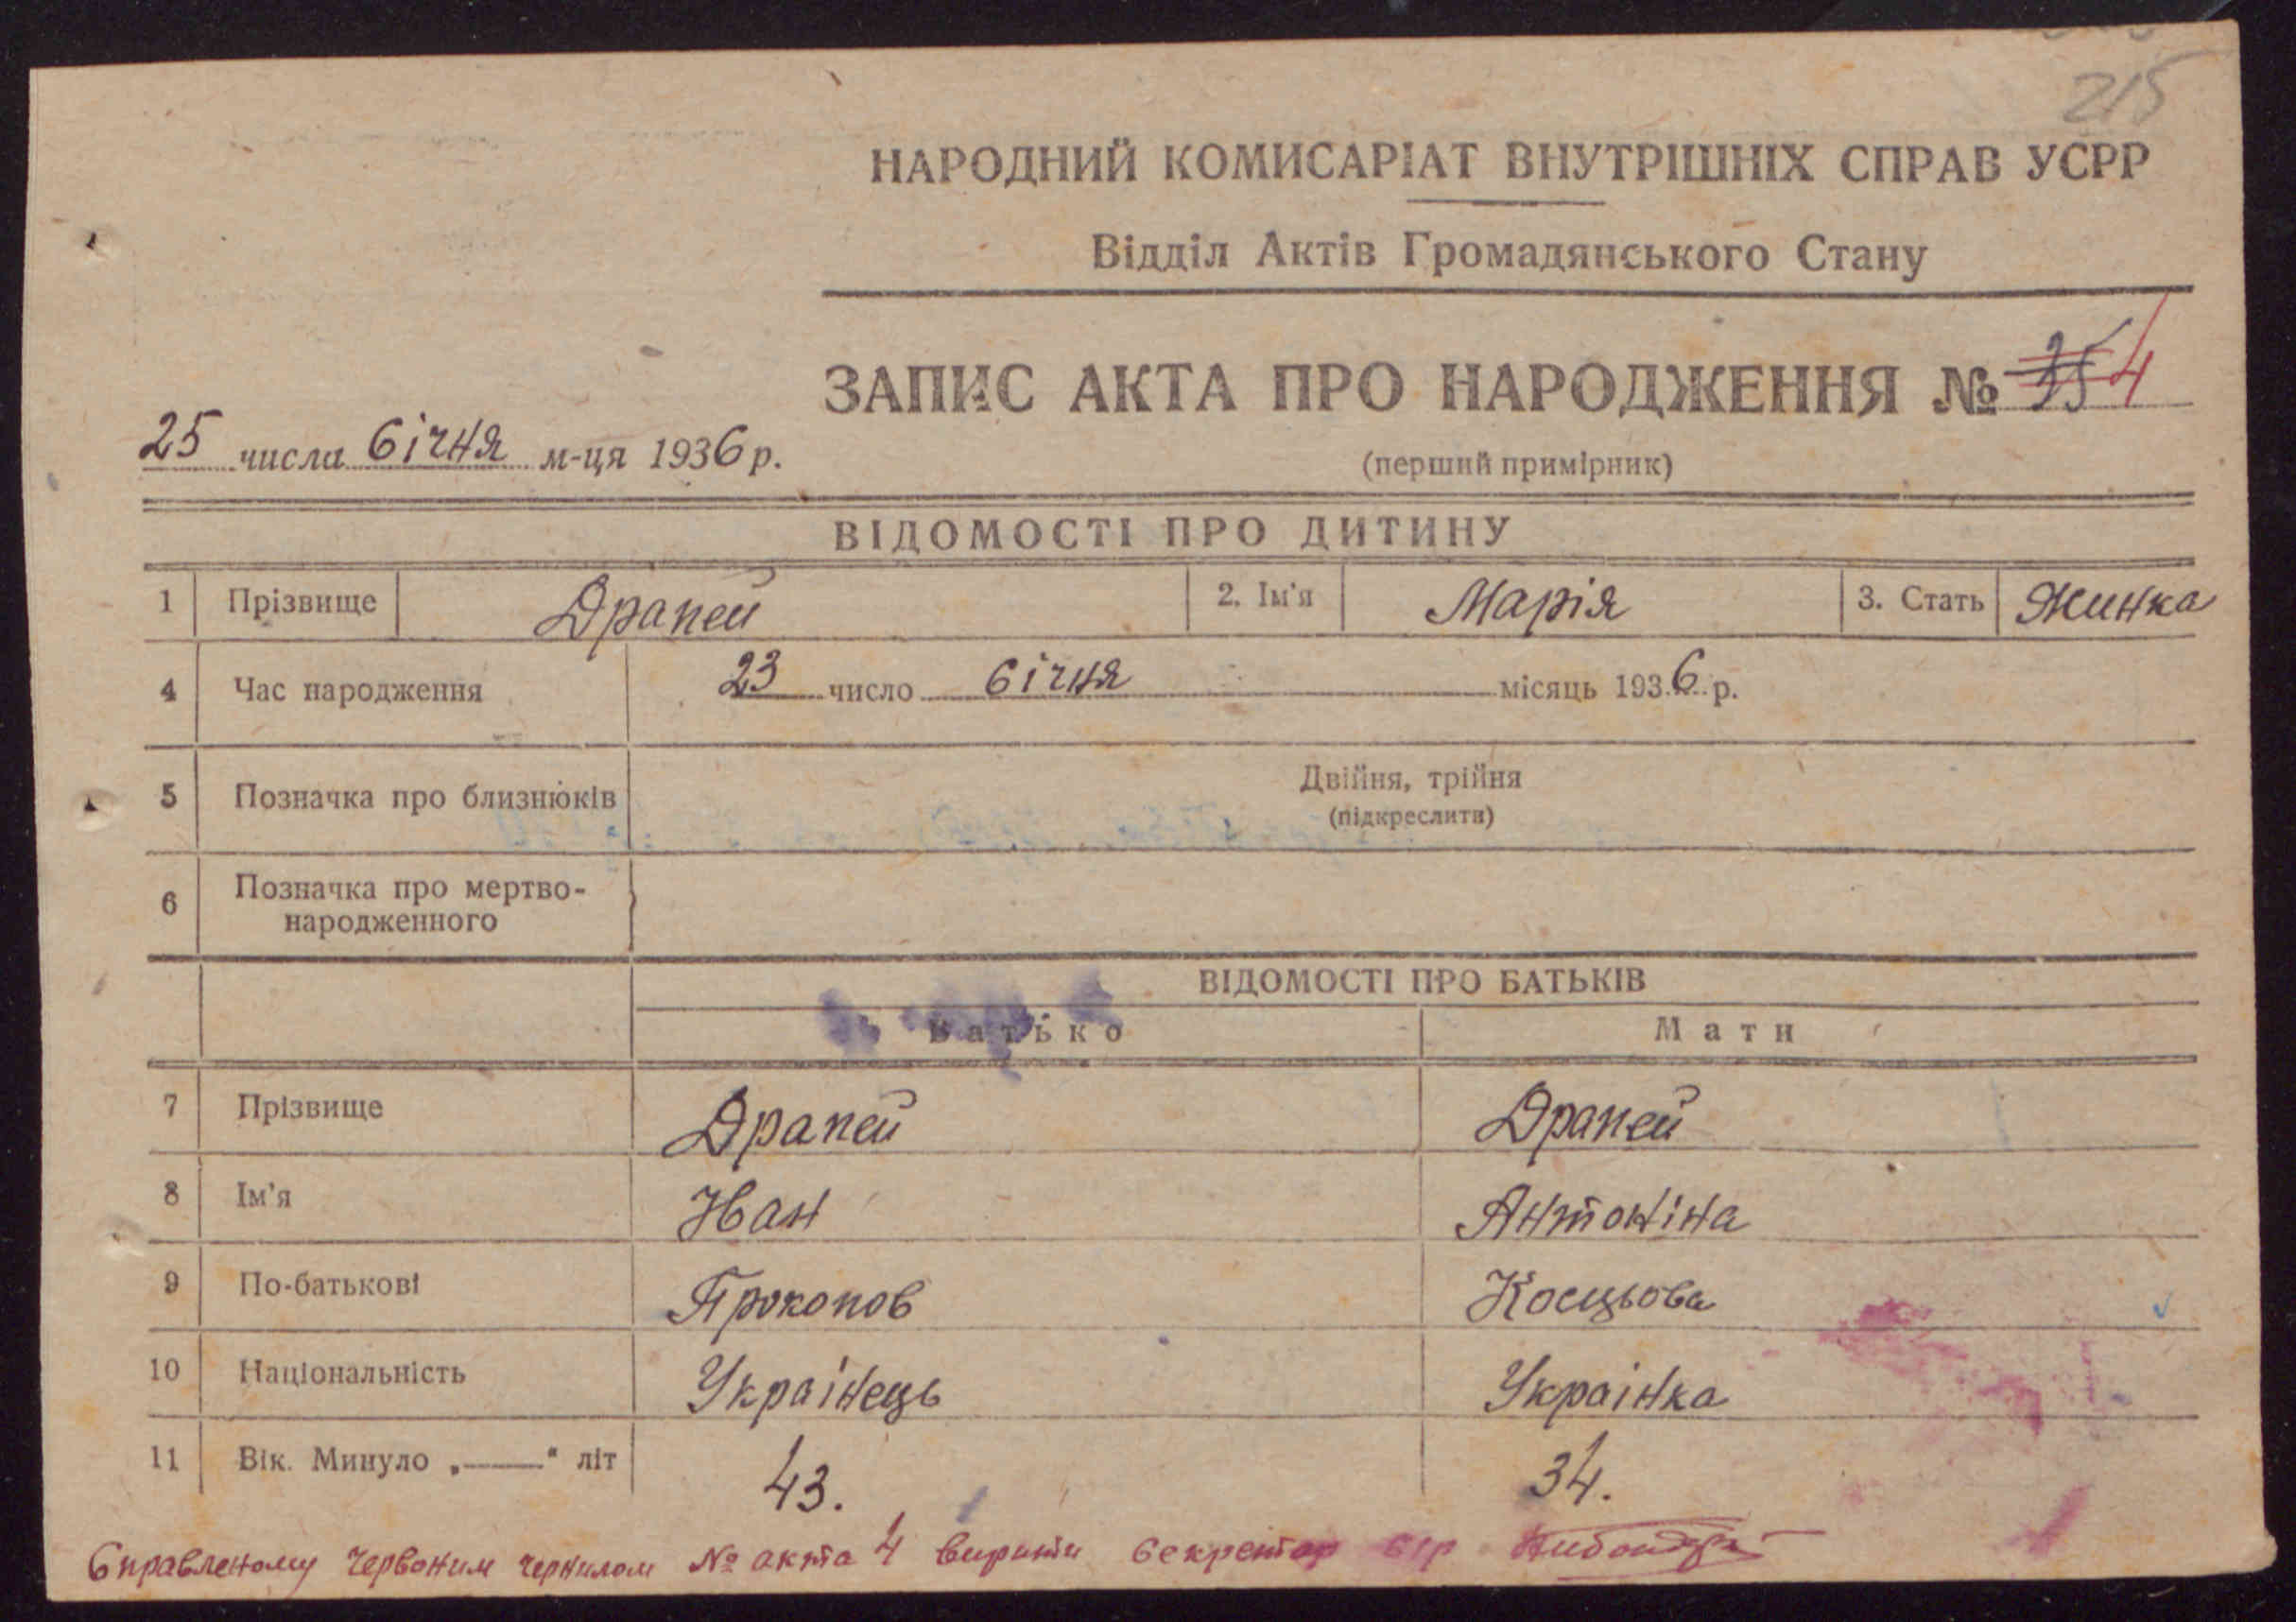 215
НАРОДНИЙ КОМИСАРІАТ ВНУТРІШНІХ СПРАВ УСРР
Відділ Актів Громадянського Стану
ЗАПИС АКТА ПРО НАРОДЖЕННЯ № 35 4
25 числа Січня м-ця 1936 р.
(перший примірник)
ВІДОМОСТІ ПРО ДИТИНУ
1 Прізвище Драпей 2. Ім'я Марія 3. Стать Жинка
4 Час народження 23 число Січня місяць 1936 р.
5 Позначка про близнюків Двійня, трійня
(підкреслити)
6 Позначка про мертво-
народженного
ВІДОМОСТІ ПРО БАТЬКІВ
Батько Мати
7 Прізвище Драпей Драпей
8 Ім'я Иван Антоніна
9 По-батькові Прокопов
10 Національність Украінець Украінка
11 Вік. Минуло „——" літ 43. 34.
Справленому червоним чернилом № акта 4 вирити Секретар С/р